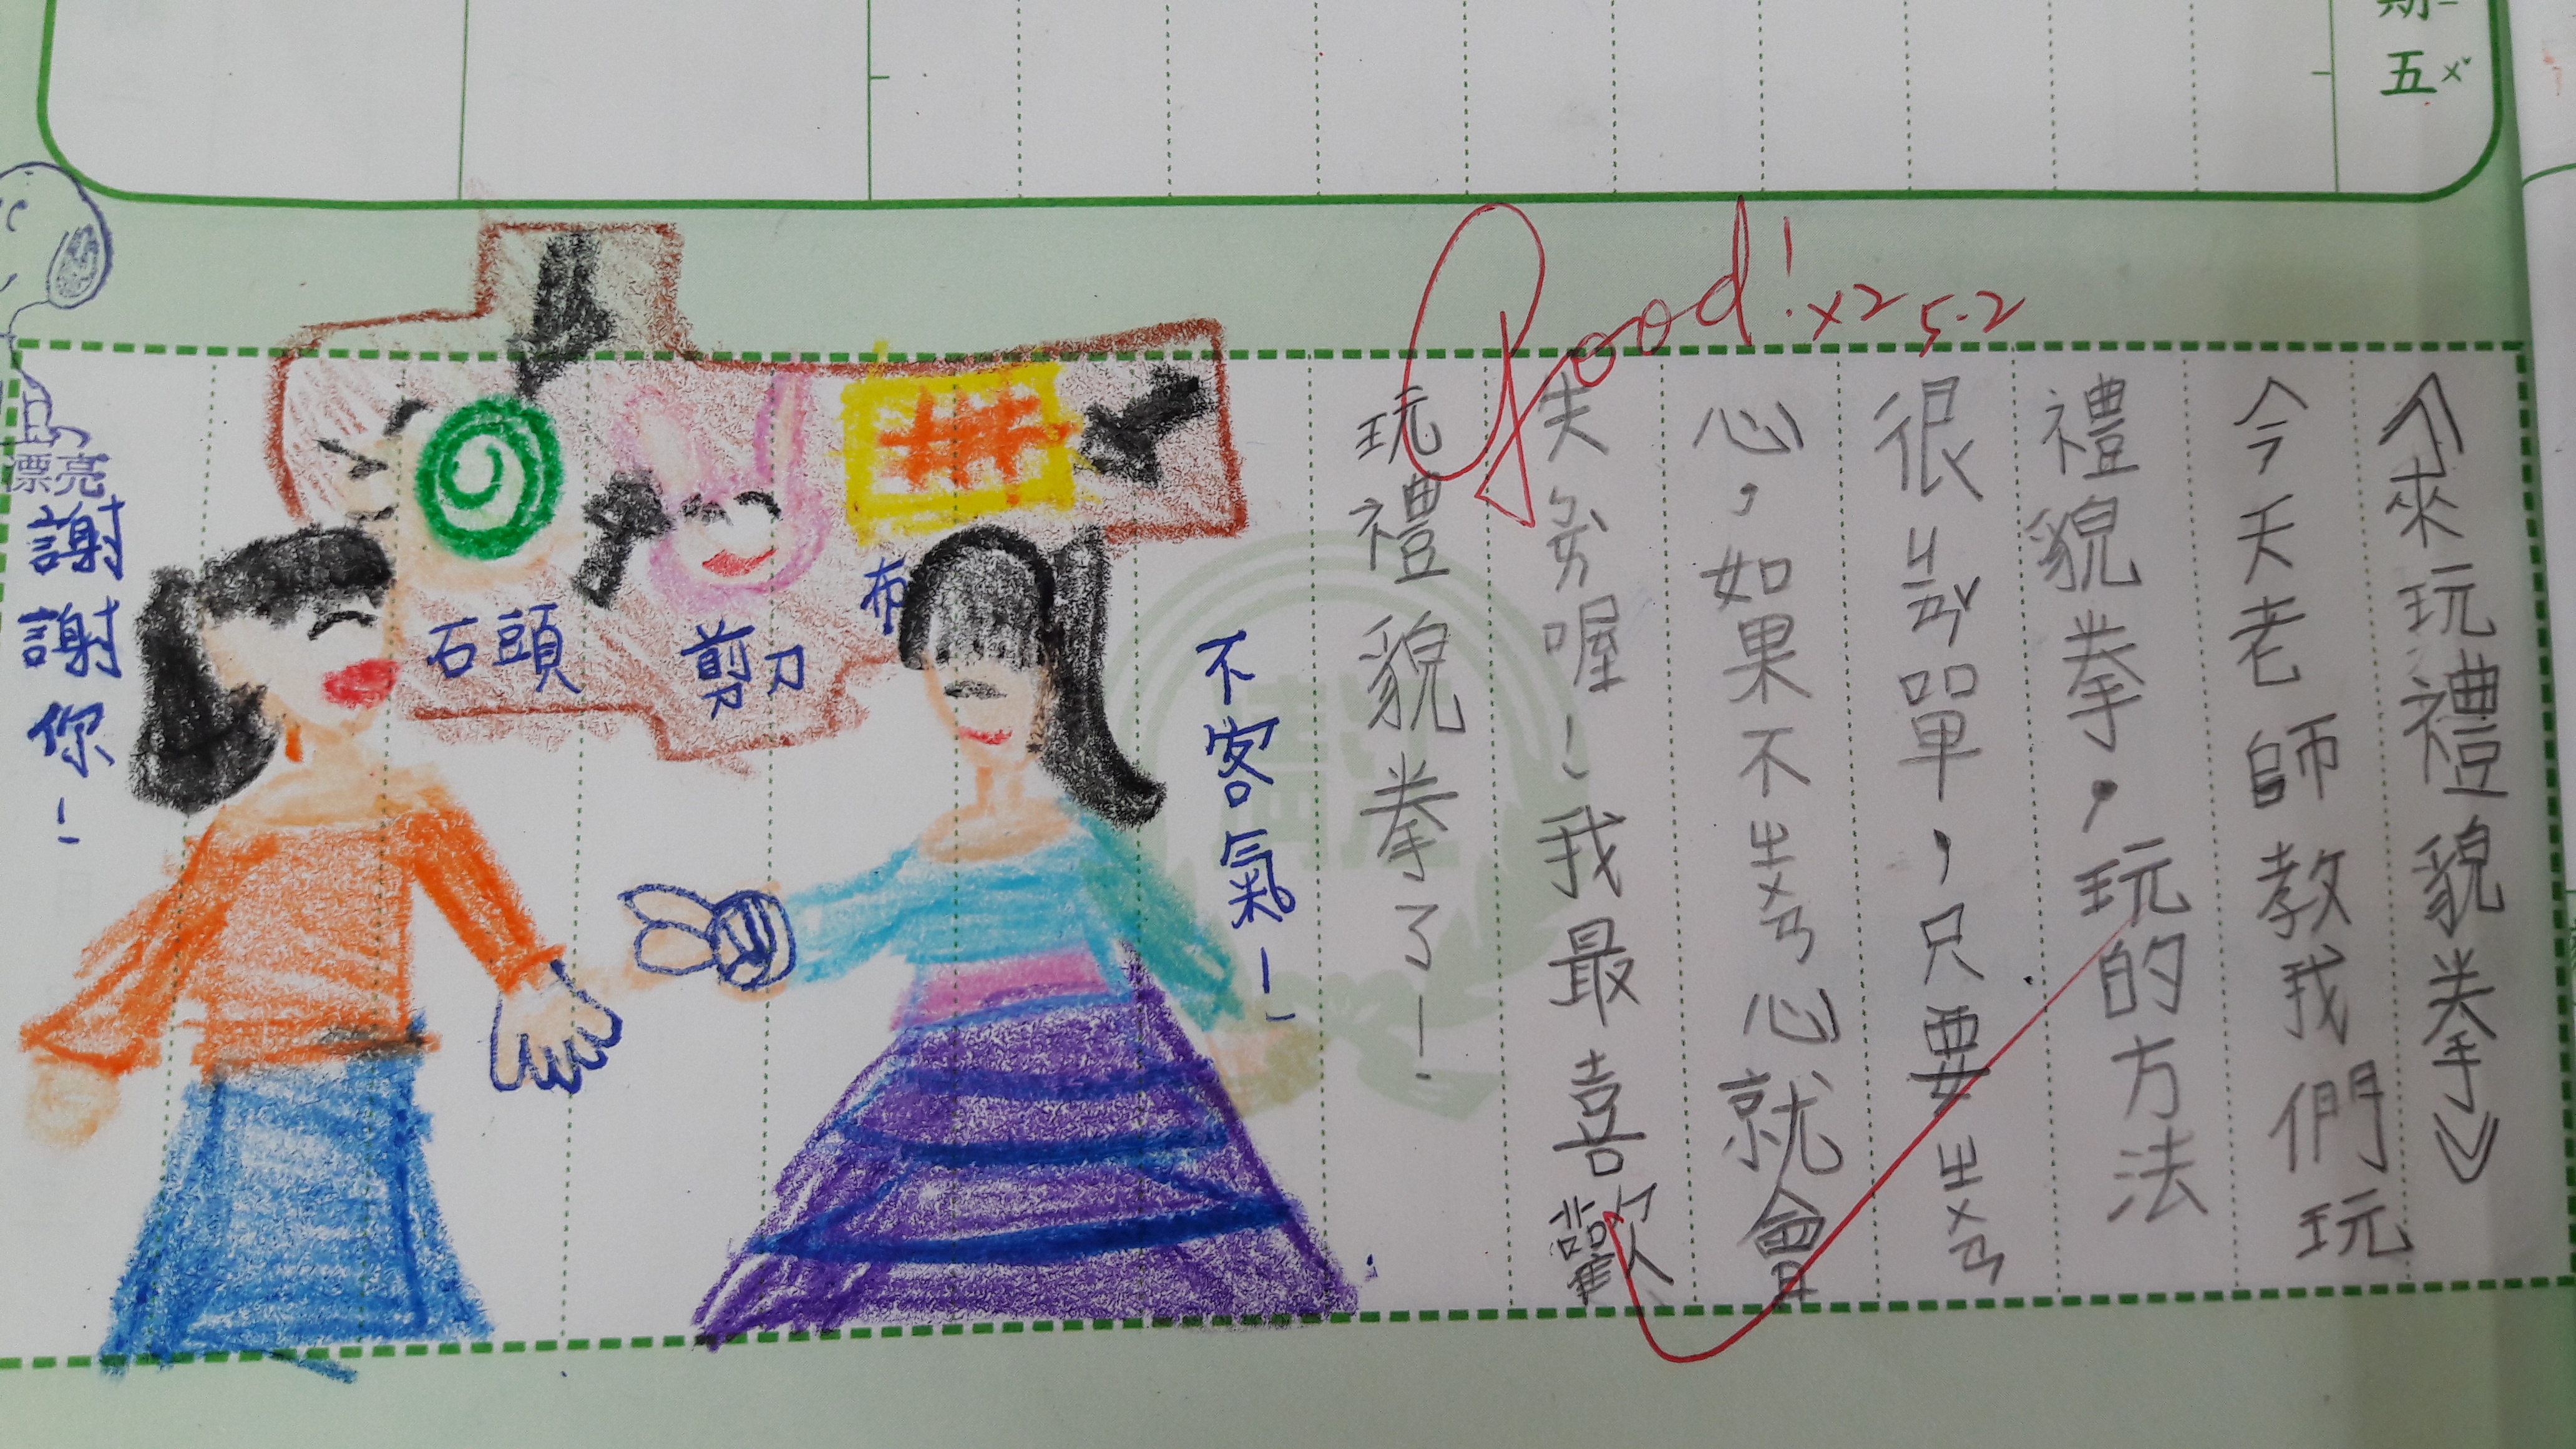 期一
五ㄨˇ
Good! x2 5.2
《來玩禮貌拳》
今天老師教我們玩
禮貌拳，玩的方法
很ㄐㄧㄢˇ單，只要ㄓㄨㄢ
心，如果不ㄓㄨㄢ心就會
失分喔！我最喜歡
玩禮貌拳了！
不客氣！
布
剪刀
石頭
謝謝你！
漂亮